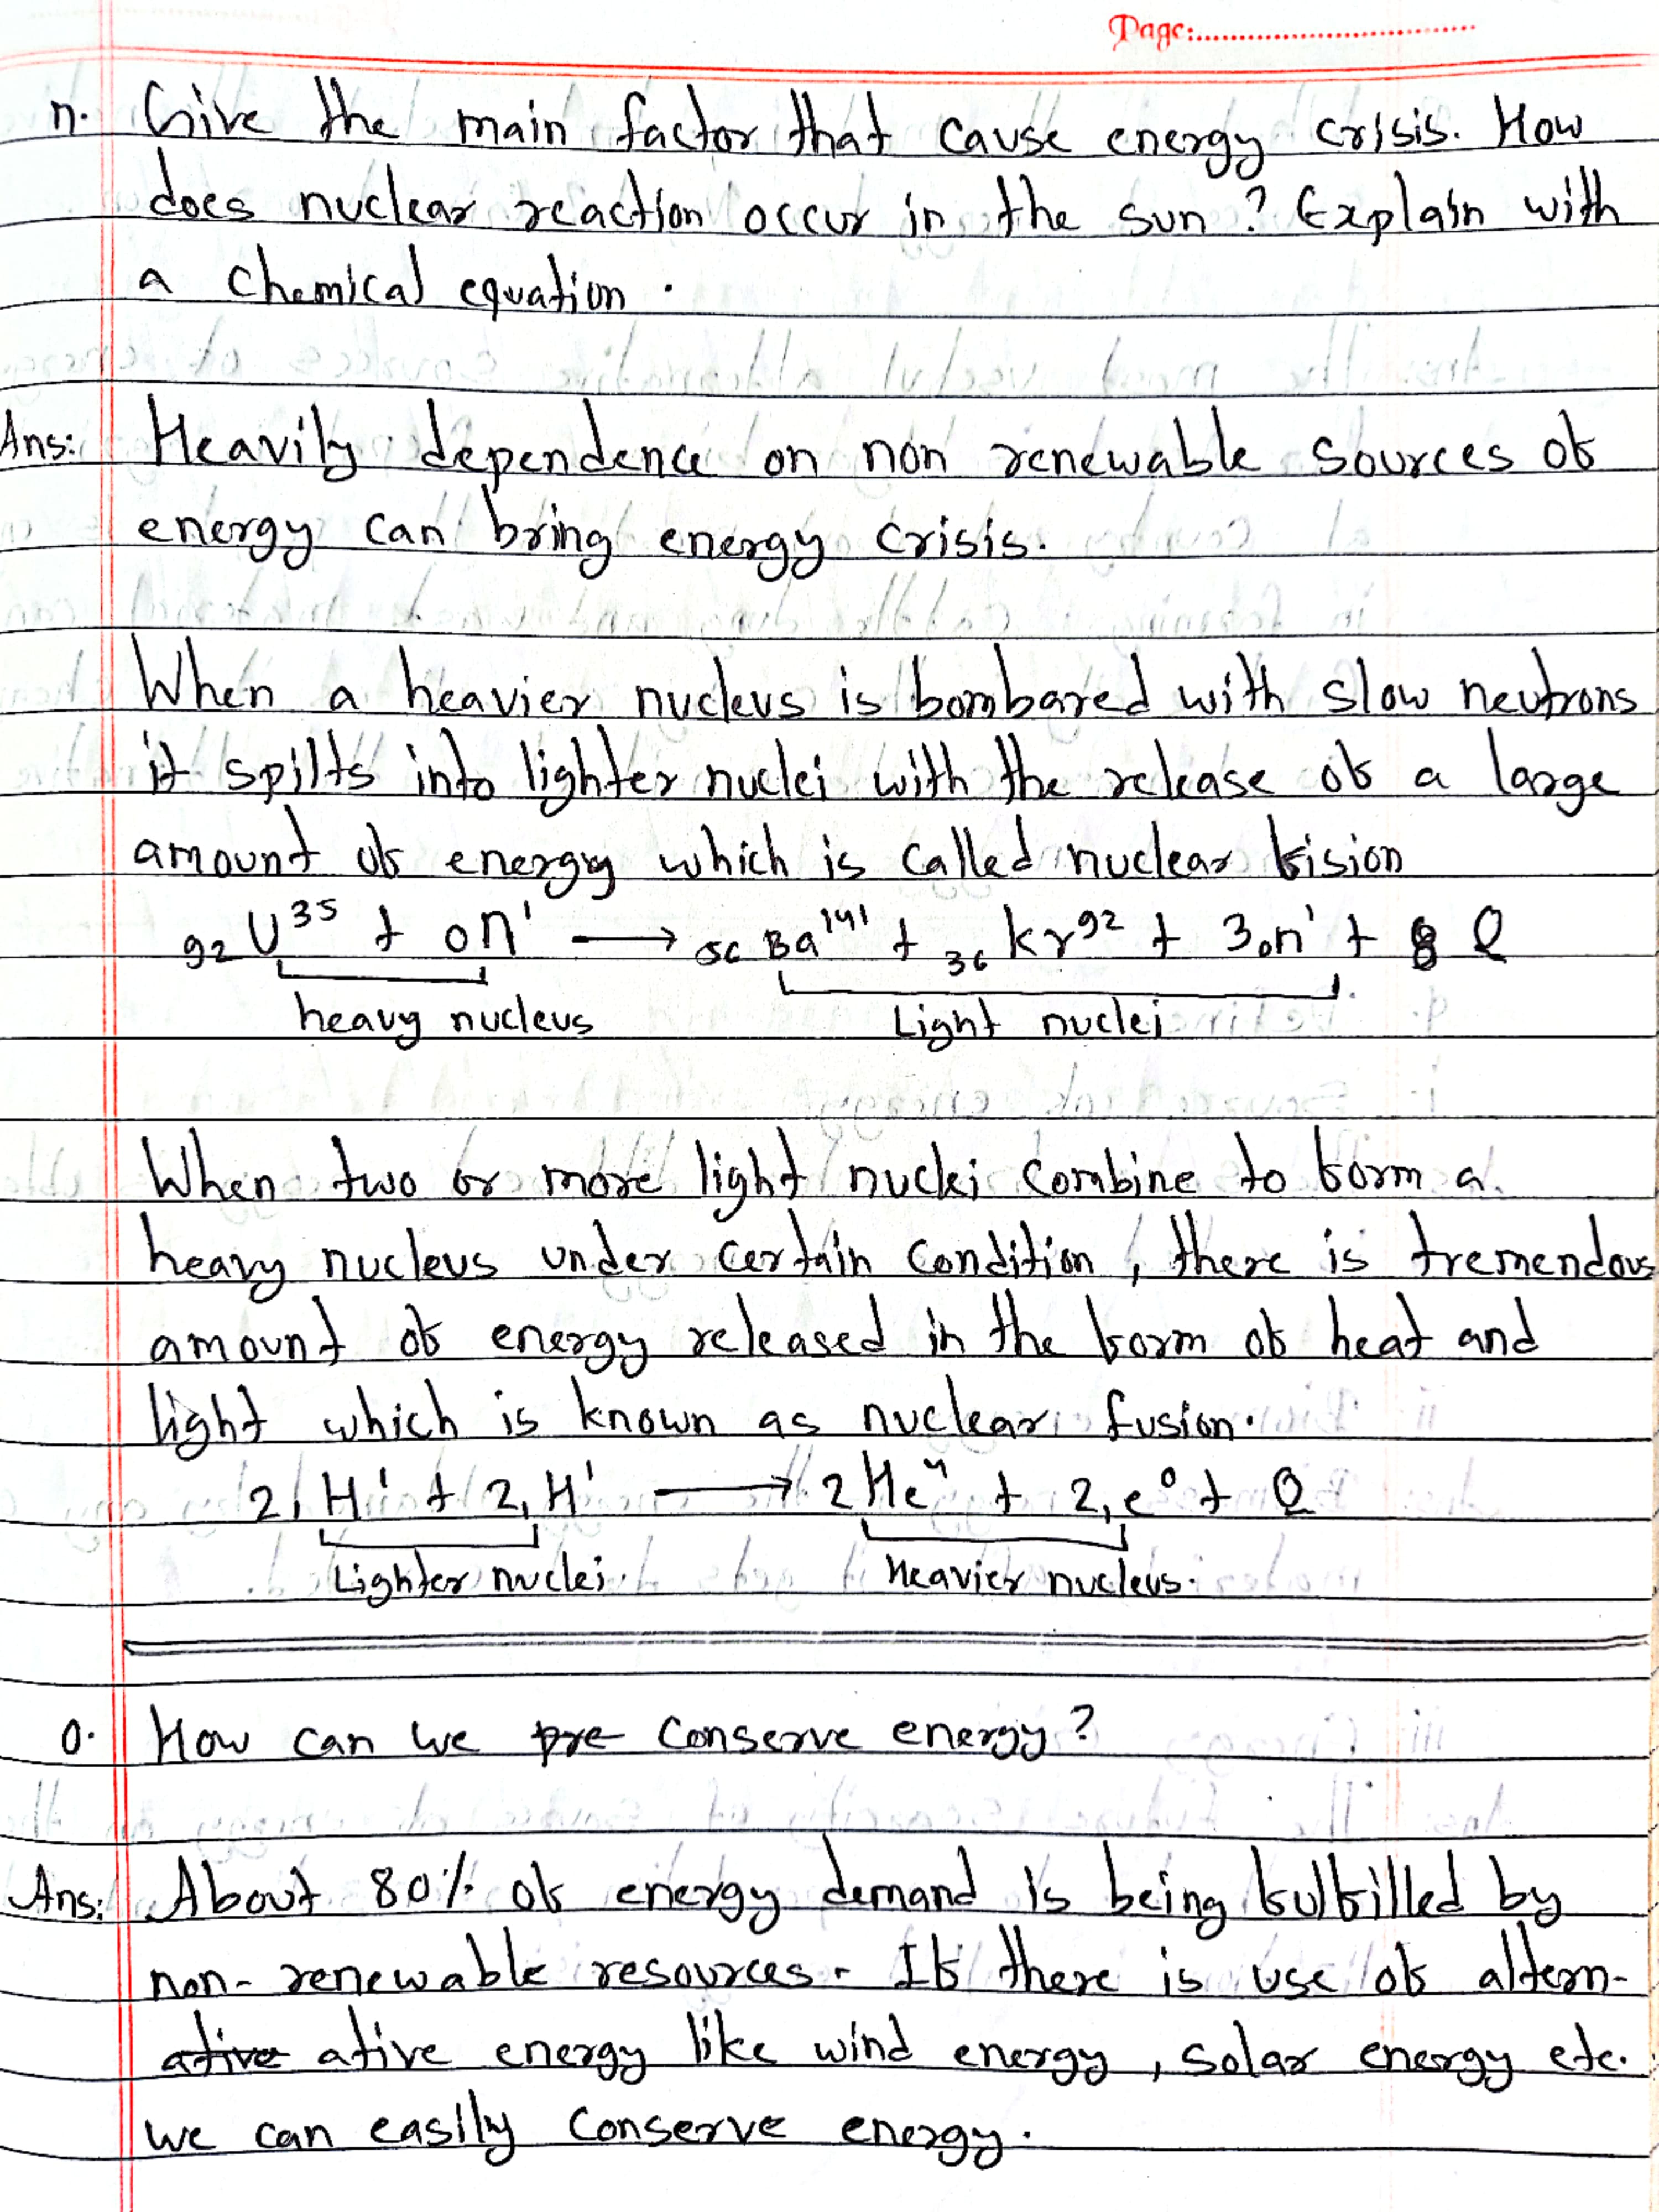 Page:
n. Give the main factor that cause energy crisis. How
does nuclear reaction occur in the sun? Explain with
a chemical equation.
Ans: Heavily dependence on non renewable sources of
energy can bring energy crisis.
When a heavier nucleus is bombared with slow neutrons
it spilts into lighter nuclei with the release of a large
amount of energy which is called nuclear fision
₉₂U³⁵ + ₀n¹ → ₅₆Ba¹⁴¹ + ₃₆Kr⁹² + 3₀n¹ + Q
heavy nucleus Light nuclei
When two or more light nuclei combine to form a
heavy nucleus under certain condition, there is tremendous
amount of energy released in the form of heat and
light which is known as nuclear fusion.
2₁H¹ + 2₁H¹ → ₂He⁴ + 2₁e⁰ + Q
Lighter nuclei. Heavier nucleus.
o. How can we pre conserve energy?
Ans: About 80% of energy demand is being fulfilled by
non-renewable resources. If there is use of altern-
ative ative energy like wind energy, solar energy etc.
we can easily conserve energy.